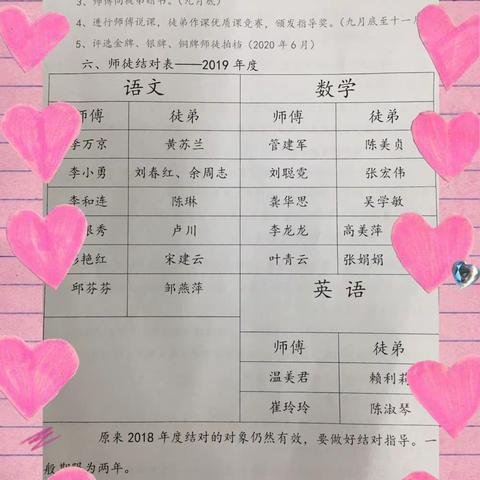 3、师傅向徒弟赠书。（九月底）
4、进行师傅说课，徒弟作课优质课竞赛，颁发指导奖。（九月底至十一月
5、评选金牌、银牌、铜牌师徒拍档（2020 年 6 月）
六、师徒结对表——2019 年度
语文 数学
师傅 徒弟 师傅 徒弟
李万京 黄苏兰 管建军 陈美贞
李小勇 刘春红、余周志 刘聪霓 张宏伟
李和连 陈琳 龚华思 吴学敏
秀 卢川 李龙龙 高美萍
艳红 宋建云 叶青云 张娟娟
邱芬芬 邹燕萍 英 语
师傅 徒弟
温美君 赖利莉
崔玲玲 陈淑琴
原来 2018 年度结对的对象仍然有效，要做好结对指导。一
般期限为两年。